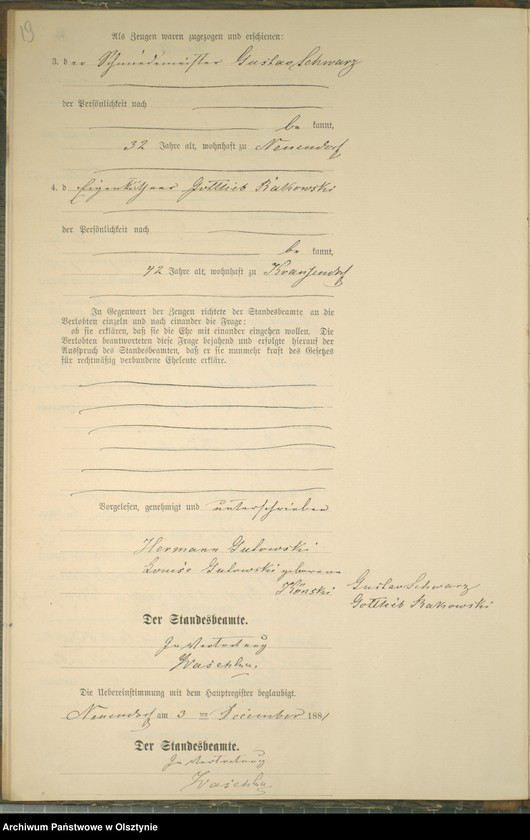 19
Als Zeugen waren zugezogen und erschienen:
3. der Schmiedemeister Gustav Schwarz
der Persönlichkeit nach
be kannt,
32 Jahre alt, wohnhaft zu Neuendorf
4. d Eigenthümer Gottlieb Rakowski
der Persönlichkeit nach
be kannt,
42 Jahre alt, wohnhaft zu
In Gegenwart der Zeugen richtete der Standesbeamte an die
Verlobten einzeln und nach einander die Frage:
ob sie erklären, daß sie die Ehe mit einander eingehen wollen. Die
Verlobten beantworteten diese Frage bejahend und erfolgte hierauf der
Ausspruch des Standesbeamten, daß er sie nunmehr kraft des Gesetzes
für rechtmäßig verbundene Eheleute erkläre.
Vorgelesen, genehmigt und unterschrieben
Hermann Gutowski
Louise Gutowski geborene
Gustav Schwarz
Gottlieb Rakowski
Der Standesbeamte.
In Vertretung
Die Uebereinstimmung mit dem Hauptregister beglaubigt.
Neuendorf am 3 ten December 1881
Der Standesbeamte.
In Vertretung
Archiwum Państwowe w Olsztynie